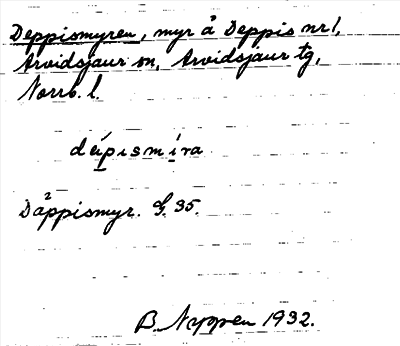 Deppismyren, myr å Deppis nr 1,
Arvidsjaur sn, Arvidsjaur tg,
Norrb. l.
dépismíra
Däppismyr. G. 35.
B. Nyppen 1932.